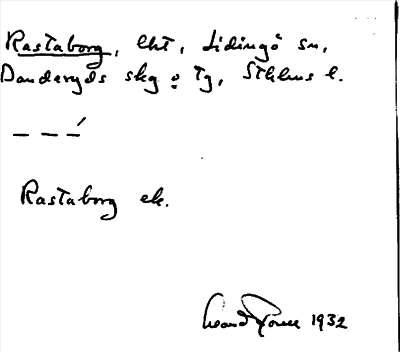 Rastaborg, lht, Lidingö sn,
Danderyds skg o tg, Sthlms l.
Rastaborg ek.
1932